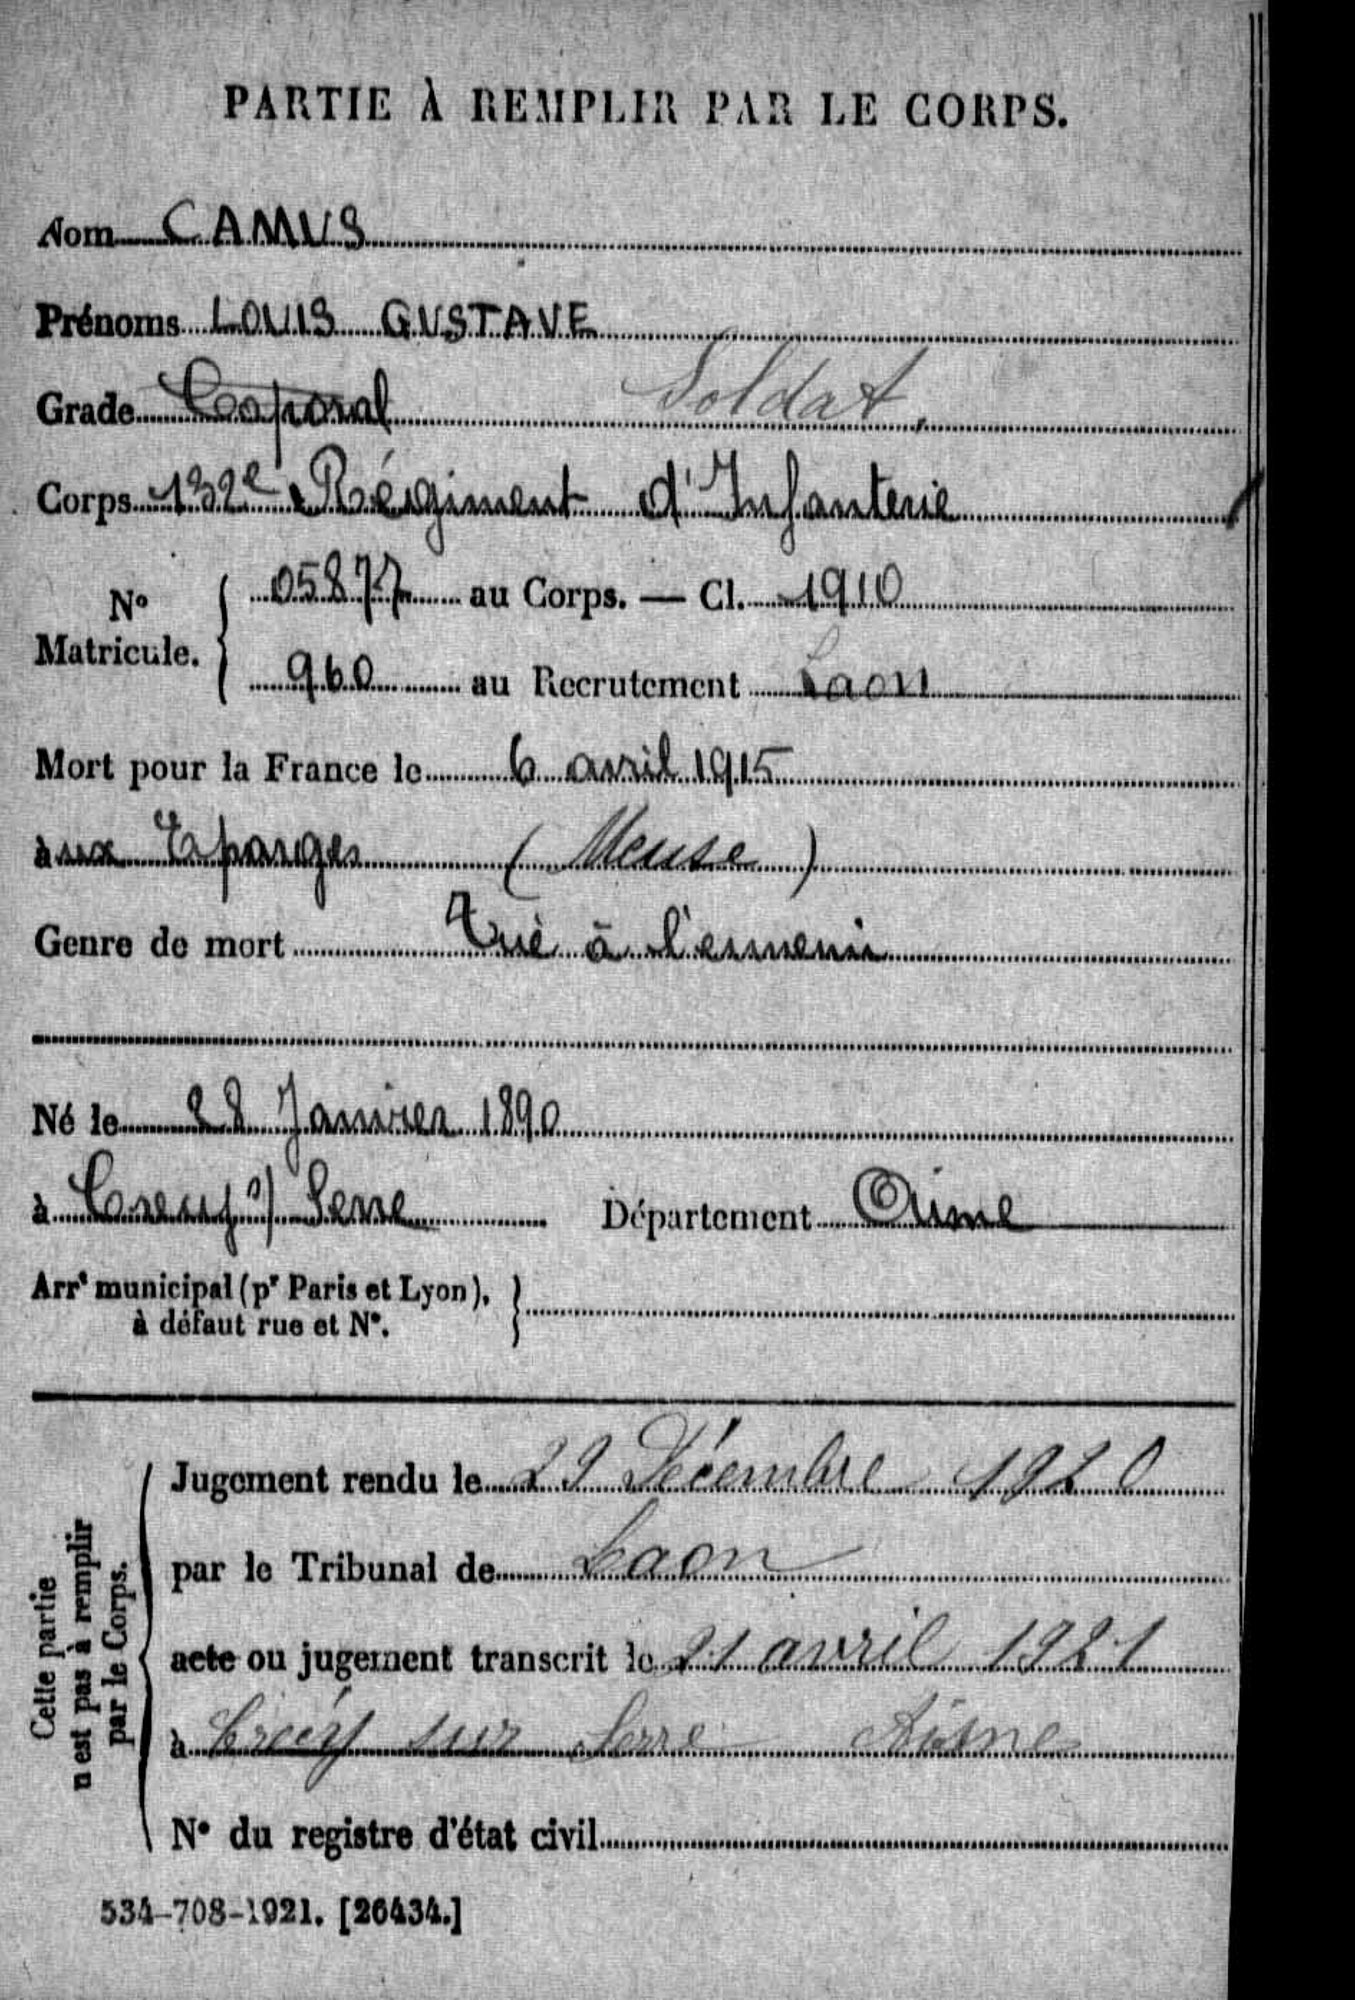 PARTIE À REMPLIR PAR LE CORPS.
Nom CAMUS
Prénoms LOUIS GUSTAVE
Grade Caporal Soldat.
Corps 132e Régiment d'Infanterie
No Matricule. 05877 au Corps. — Cl. 1910
960 au Recrutement Laon
Mort pour la France le 6 avril 1915
aux Eparges (Meuse)
Genre de mort Tué à l'ennemi
Né le 28 Janvier 1890
à Crecy s/ Serre Département Aisne
Arrt municipal (pr Paris et Lyon),
à défaut rue et No.
Cette partie
n'est pas à remplir
par le Corps.
Jugement rendu le 29 Décembre 1920
par le Tribunal de Laon
acte ou jugement transcrit le 21 avril 1921
à Crécy sur Serre Aisne
No du registre d'état civil
534-708-1921. [26434.]